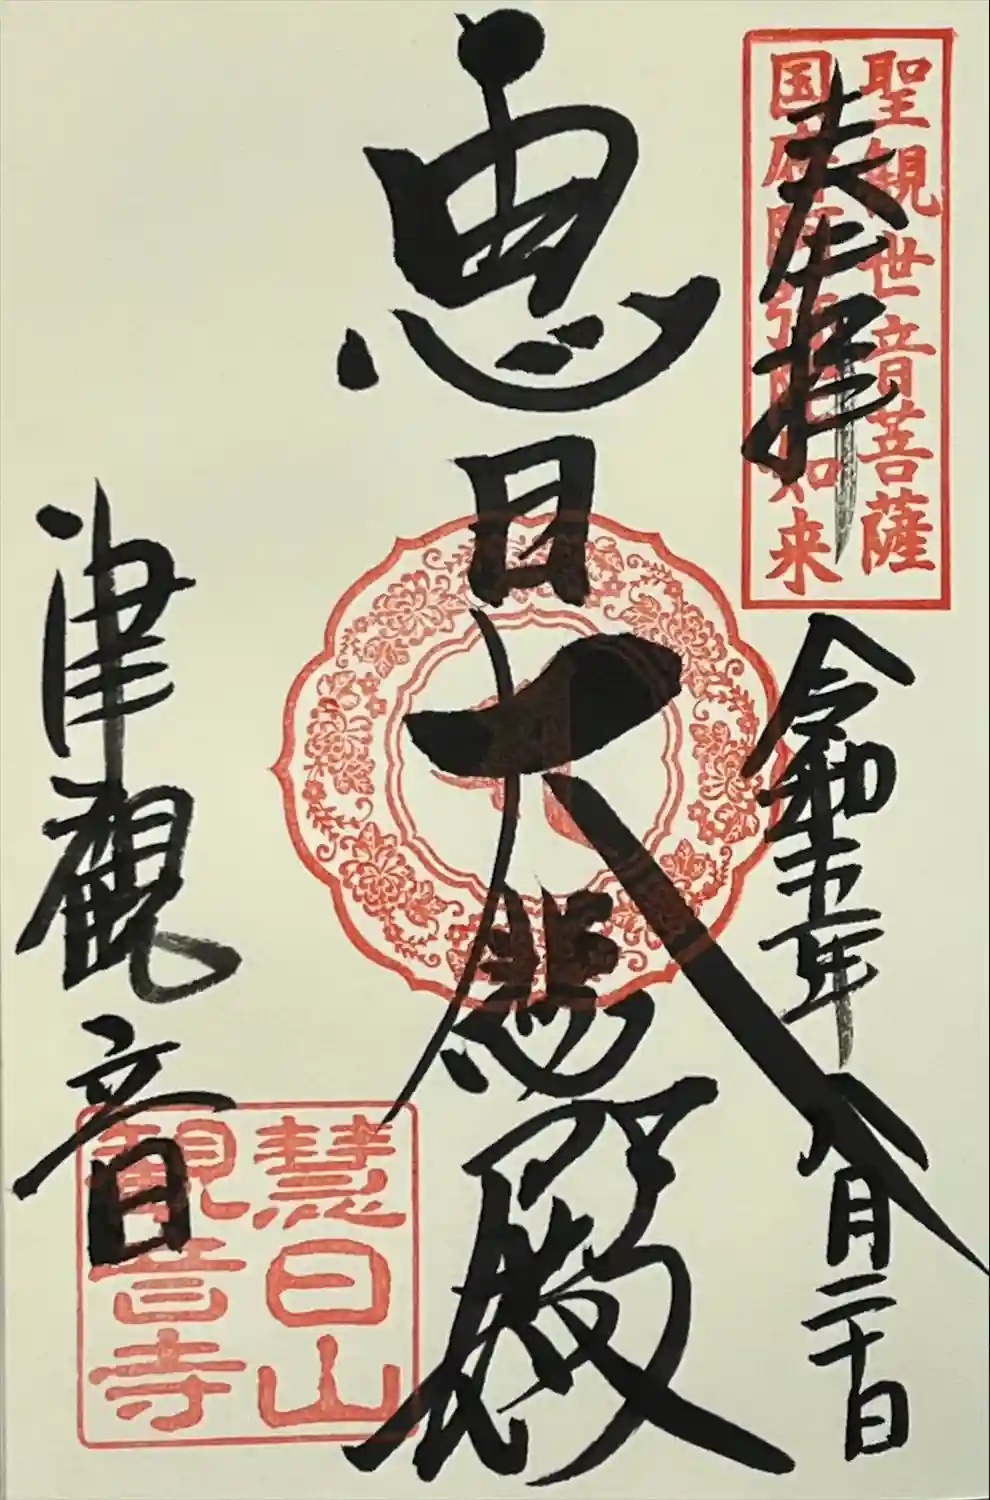 聖観世音菩薩
国府阿弥陀如来
奉拝
令和 年八月二十日
恵日大悲殿
津観音
慧日山
観音寺